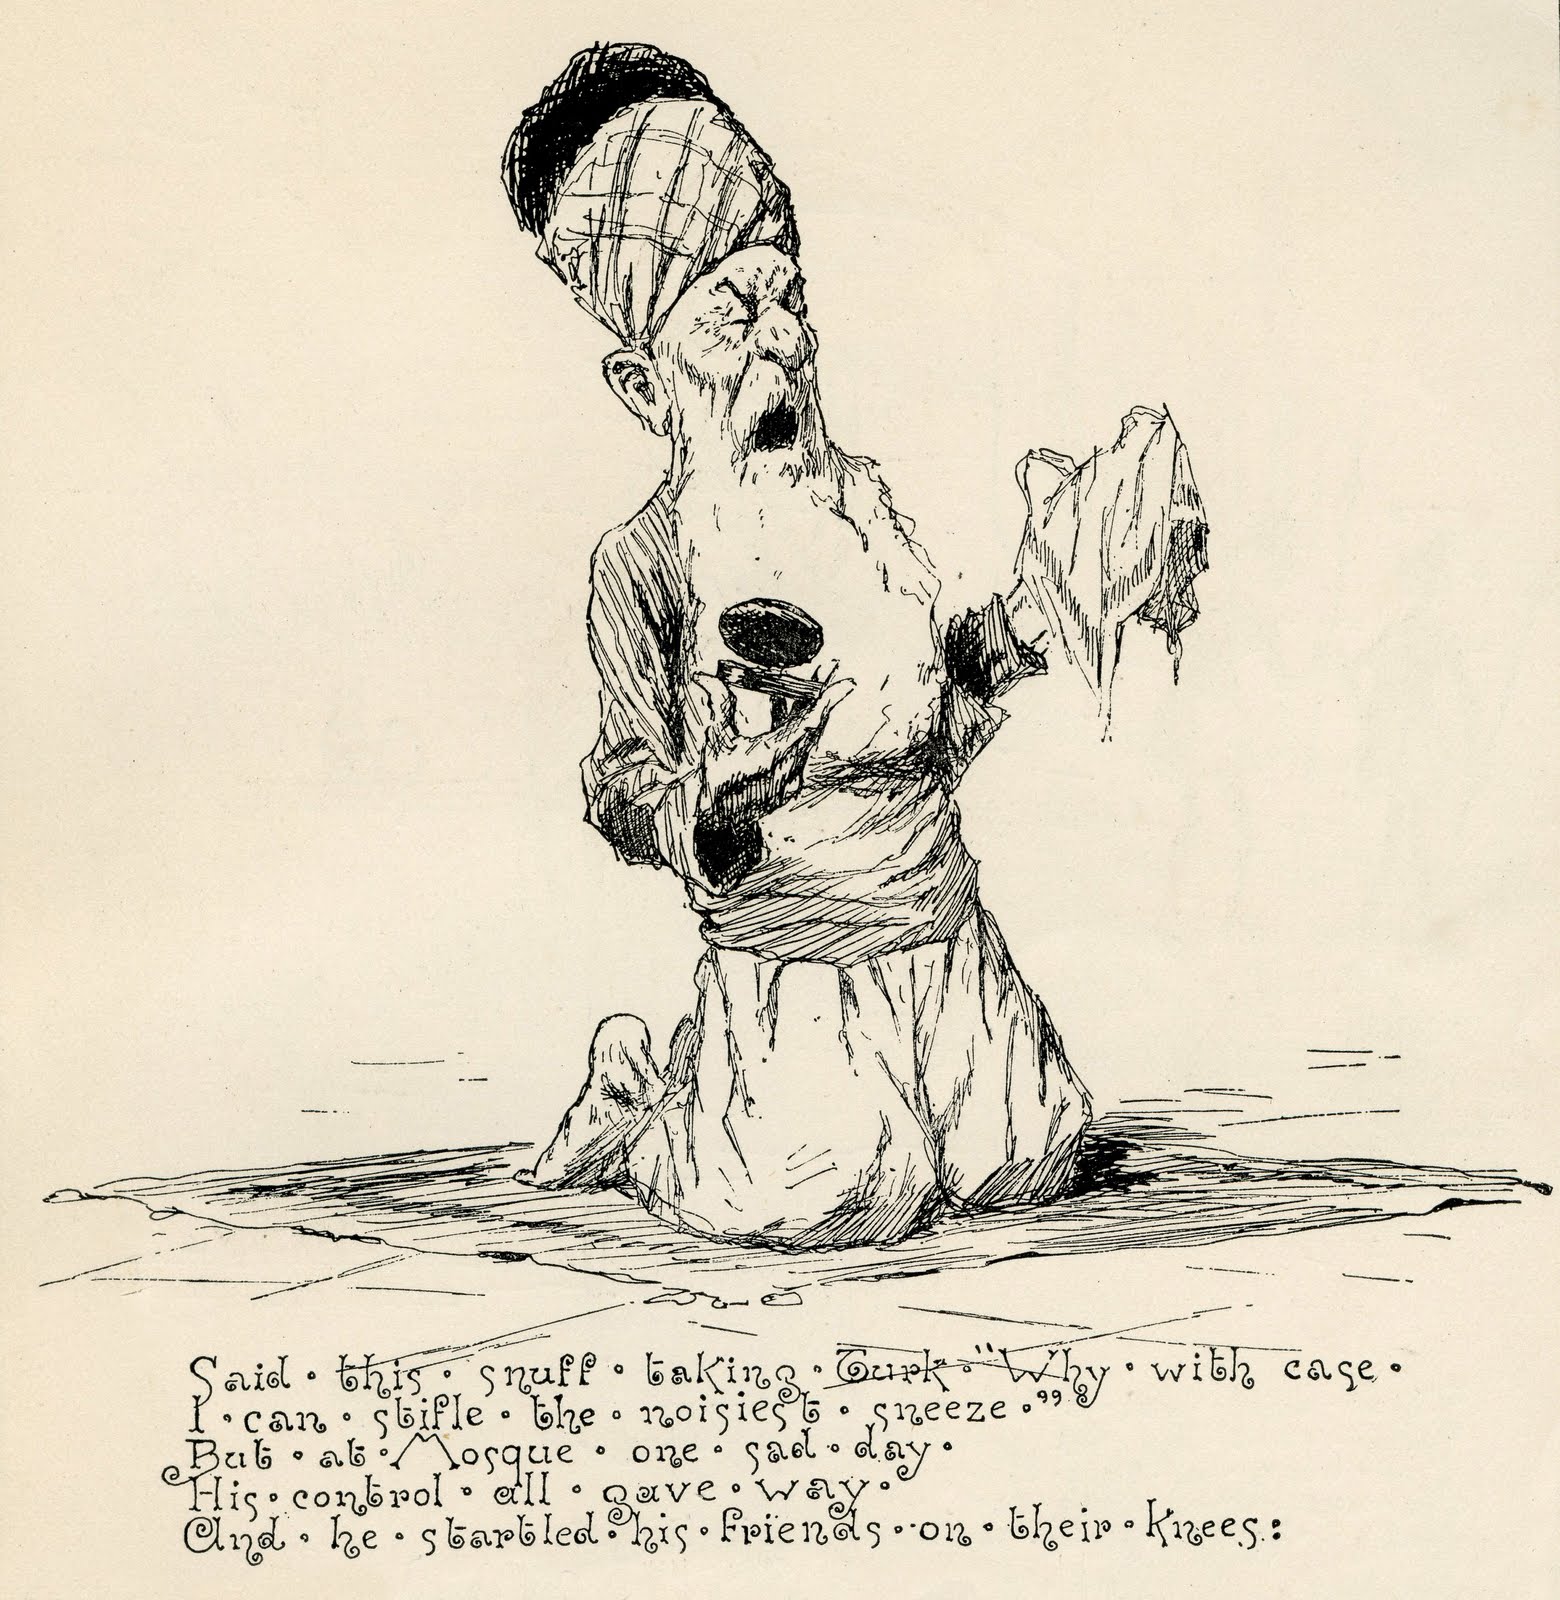 Said · this · snuff · taking · Turk · "Why · with ease ·
I · can · stifle · the · noisiest · sneeze · "
But · at · Mosque · one · sad · day ·
His · control · all · gave · way ·
And · he · startled · his · friends · on · their · knees :